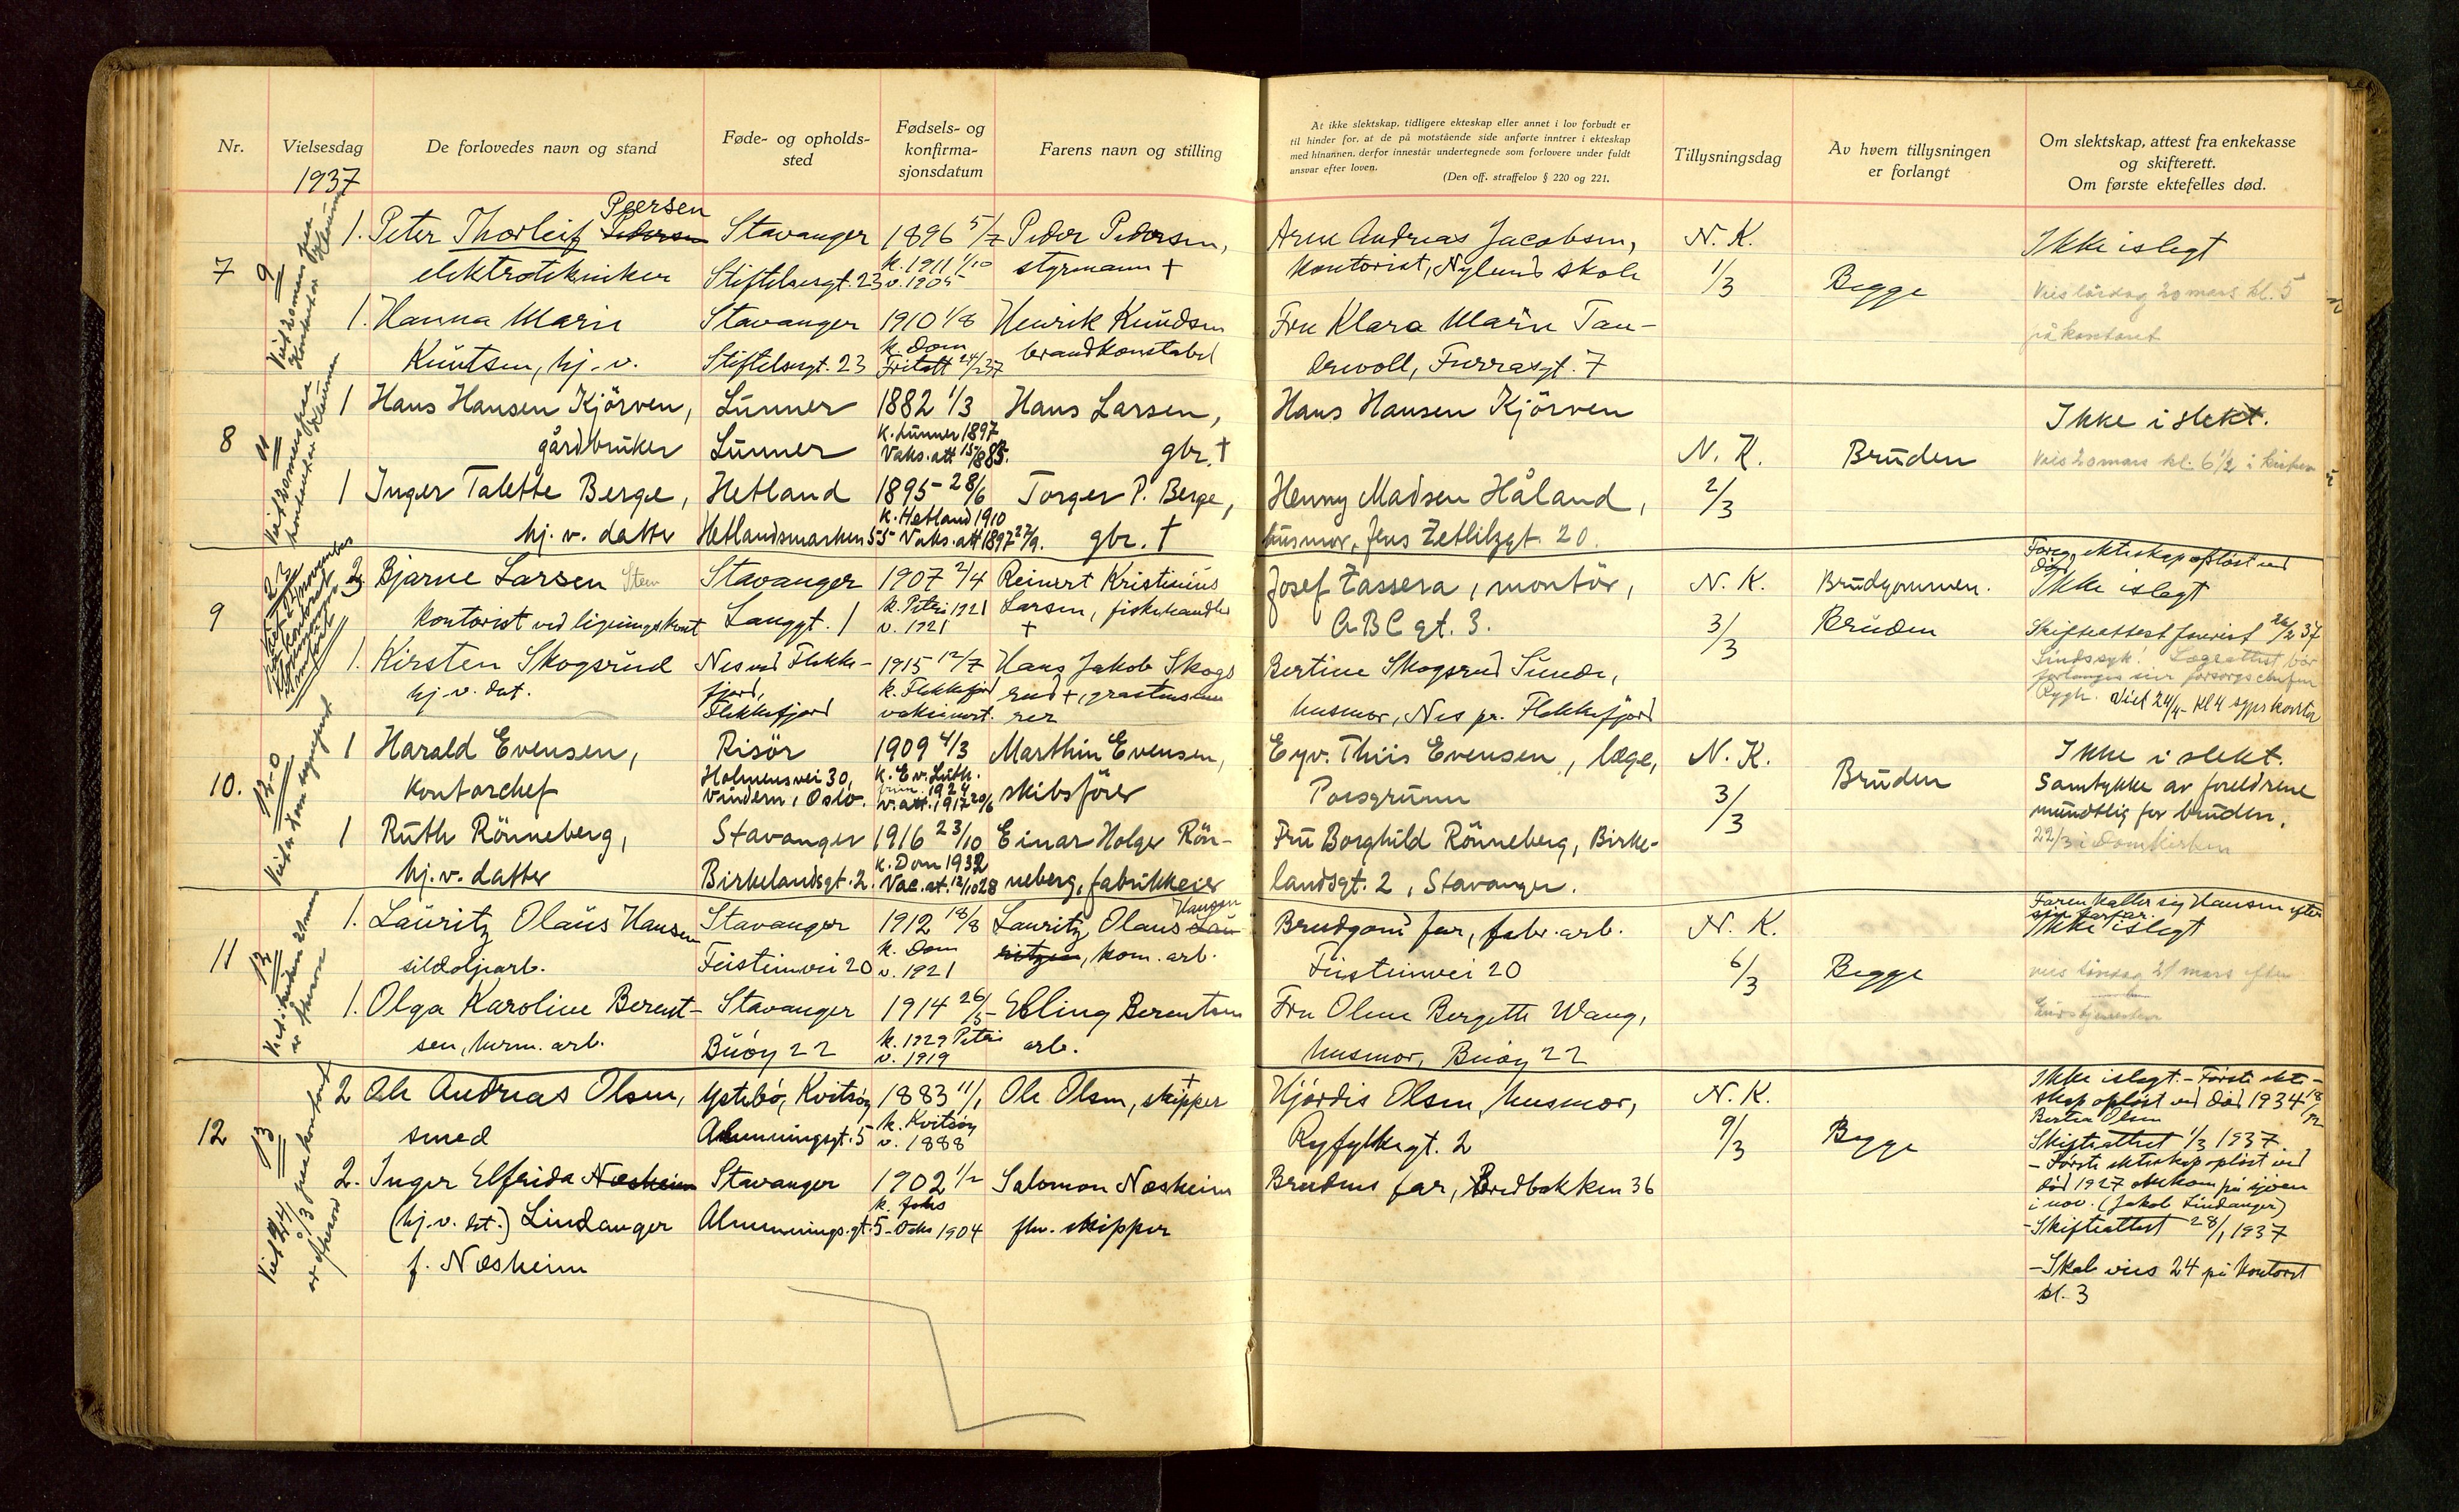 Nr.
Vielsesdag
1937
De forlovedes navn og stand
Føde- og opholds-
sted
Fødsels- og
konfirma-
sjonsdatum
Farens navn og stilling
At ikke slektskap, tidligere ekteskap eller annet i lov forbudt er
til hinder for, at de på motstående side anførte inntrer i ekteskap
med hinannen, derfor innestår undertegnede som forlovere under fuldt
ansvar efter loven.
(Den off. straffelov § 220 og 221.
Tillysningsdag
Av hvem tillysningen
er forlangt
Om slektskap, attest fra enkekasse
og skifterett.
Om første ektefelles død.
7
9
1. Peter Thorleif Pedersen Peersen
elektrotekniker
Stavanger
Stiftelsesgt. 23
1896 5/7
k. 1911 1/10
v. 1905
Peder Pedersen,
styrmann †
Arne Andreas Jacobsen,
kontorist, Nylund skole
N. K.
1/3
Begge
Ikke i slegt
Vies lördag 20 mars kl. 5
på kontoret
1. Hanna Marie
Knutsen, hj. v.
Stavanger
Stiftelsesgt. 23
1910 1/8
k. Dom
Fritatt 24/2 37
Henrik Knudsen
brandkonstabel
Fru Klara Marie Tan-
drevoll, Furrasgt. 7
8
11
1 Hans Hansen Kjörven,
gårdbruker
Lunner
Lunner
1882 1/3
k. Lunner 1897
Vaks. att 15/8 85.
Hans Larsen,
gbr. †
Hans Hansen Kjörven
N. K.
2/3
Bruden
Ikke i slekt.
Vies 20 mars kl. 6 1/2 i kirken
1 Inger Talette Berge,
hj. v. datter
Hetland
Hetlandsmarken 55
1895 - 28/6
k. Hetland 1910
Vaks. att 1897 27/9.
Torger P. Berge,
gbr. †
Henny Madsen Håland,
husmor, Jens Zetlitzgt. 20.
9
23
2 Bjarne Larsen Steen
kontorist ved ligningskont
Stavanger
Langgt. 1
1907 2/4
k. Petri 1921
v. 1921
Reinert Kristinius
Larsen, fiskehandler
†
Josef Tassera, montör,
ABC gt. 3.
N. K.
3/3
Brudgommen.
Bruden
Foreg. ekteskap oplöst ved
död
Ikke i slegt
Skifteattest forevist 26/2 37
Sindssyk! Lægeattest bör
forlanges
Rygh. Viet 24/4 - kl 4
1. Kirsten Skogsrud
hj. v. dat.
Nes ved Flekke-
fjord,
Flekkefjord
1915 12/7
k. Flekkefjord
vaksinert.
Hans Jakob Skogs
rud †,
Bertine Skogsrud Sunde,
husmor, Nes pr. Flekkefjord
10.
12-0
1 Harald Evensen,
Kontorchef
Risör
Holmensvei 30,
Vindern, Oslo.
1909 4/3
k. Ev. Luth.
frim. 1924
v. att. 1917 20/6
Marthin Evensen,
skibsförer
Eyv. Thiis Evensen, læge,
Porsgrunn
N. K.
3/3
Bruden
Ikke i slekt.
Samtykke av foreldrene
mundtlig for bruden.
22/3 i Domkirken
1 Ruth Rönneberg,
hj. v. datter
Stavanger
Birkelandsgt. 2.
1916 23/10
k. Dom 1932
Vac. at. 12/10 28
Einar Holger Rön-
neberg, fabrikkeier
Fru Borghild Rönneberg, Birke-
landsgt. 2, Stavanger.
11
12
1. Lauritz Olaus Hansen
sildoljearb.
Stavanger
Feisteinvei 20
1912 18/8
k. Dom
v. 1921
Lauritz Olaus Lau- Hansen
ritzen, kom. arb.
Brudgoms far, fabr. arb.
Feisteinvei 20
N. K.
6/3
Begge
Faren kaller sig Hansen efter
sin farfar.
Ikke i slegt
vies söndag 21 mars efter
1. Olga Karoline Berent-
sen, herm. arb.
Stavanger
Buöy 22
1914 26/5
k. 1929 Petri
v. 1919
Elling Berentsen
arb.
Fru Olene Bergette Wang,
husmor, Buöy 22
12
13
2 Ole Andreas Olsen,
smed
Ystebö, Kvitsöy
Almenningsgt. 5
1883 11/1
k. Kvitsöy
v. 1888
Ole Olsen, skipper †
Hjördis Olsen, husmor,
Ryfylkegt. 2
N. K.
9/3
Begge
Ikke i slegt. - Förste ekte-
skap oplöst ved död 1934 18/12
Berta Olsen
Skifteattest 1/3 1937.
- Förste ekteskap oplöst ved
död 1927 omkom på sjöen
i nov. (Jakob Lindanger)
- Skifteattest 28/1 1937
- Skal vies 24 på kontoret
kl. 3
2. Inger Elfrida Næsheim
(hj. v. dt.) Lindanger
f. Næsheim
Stavanger
Almenningsgt. 5
1902 1/2
k. Johs
v. 1904
Salomon Næsheim
fhv. skipper
Brudens far, Bredbakken 36